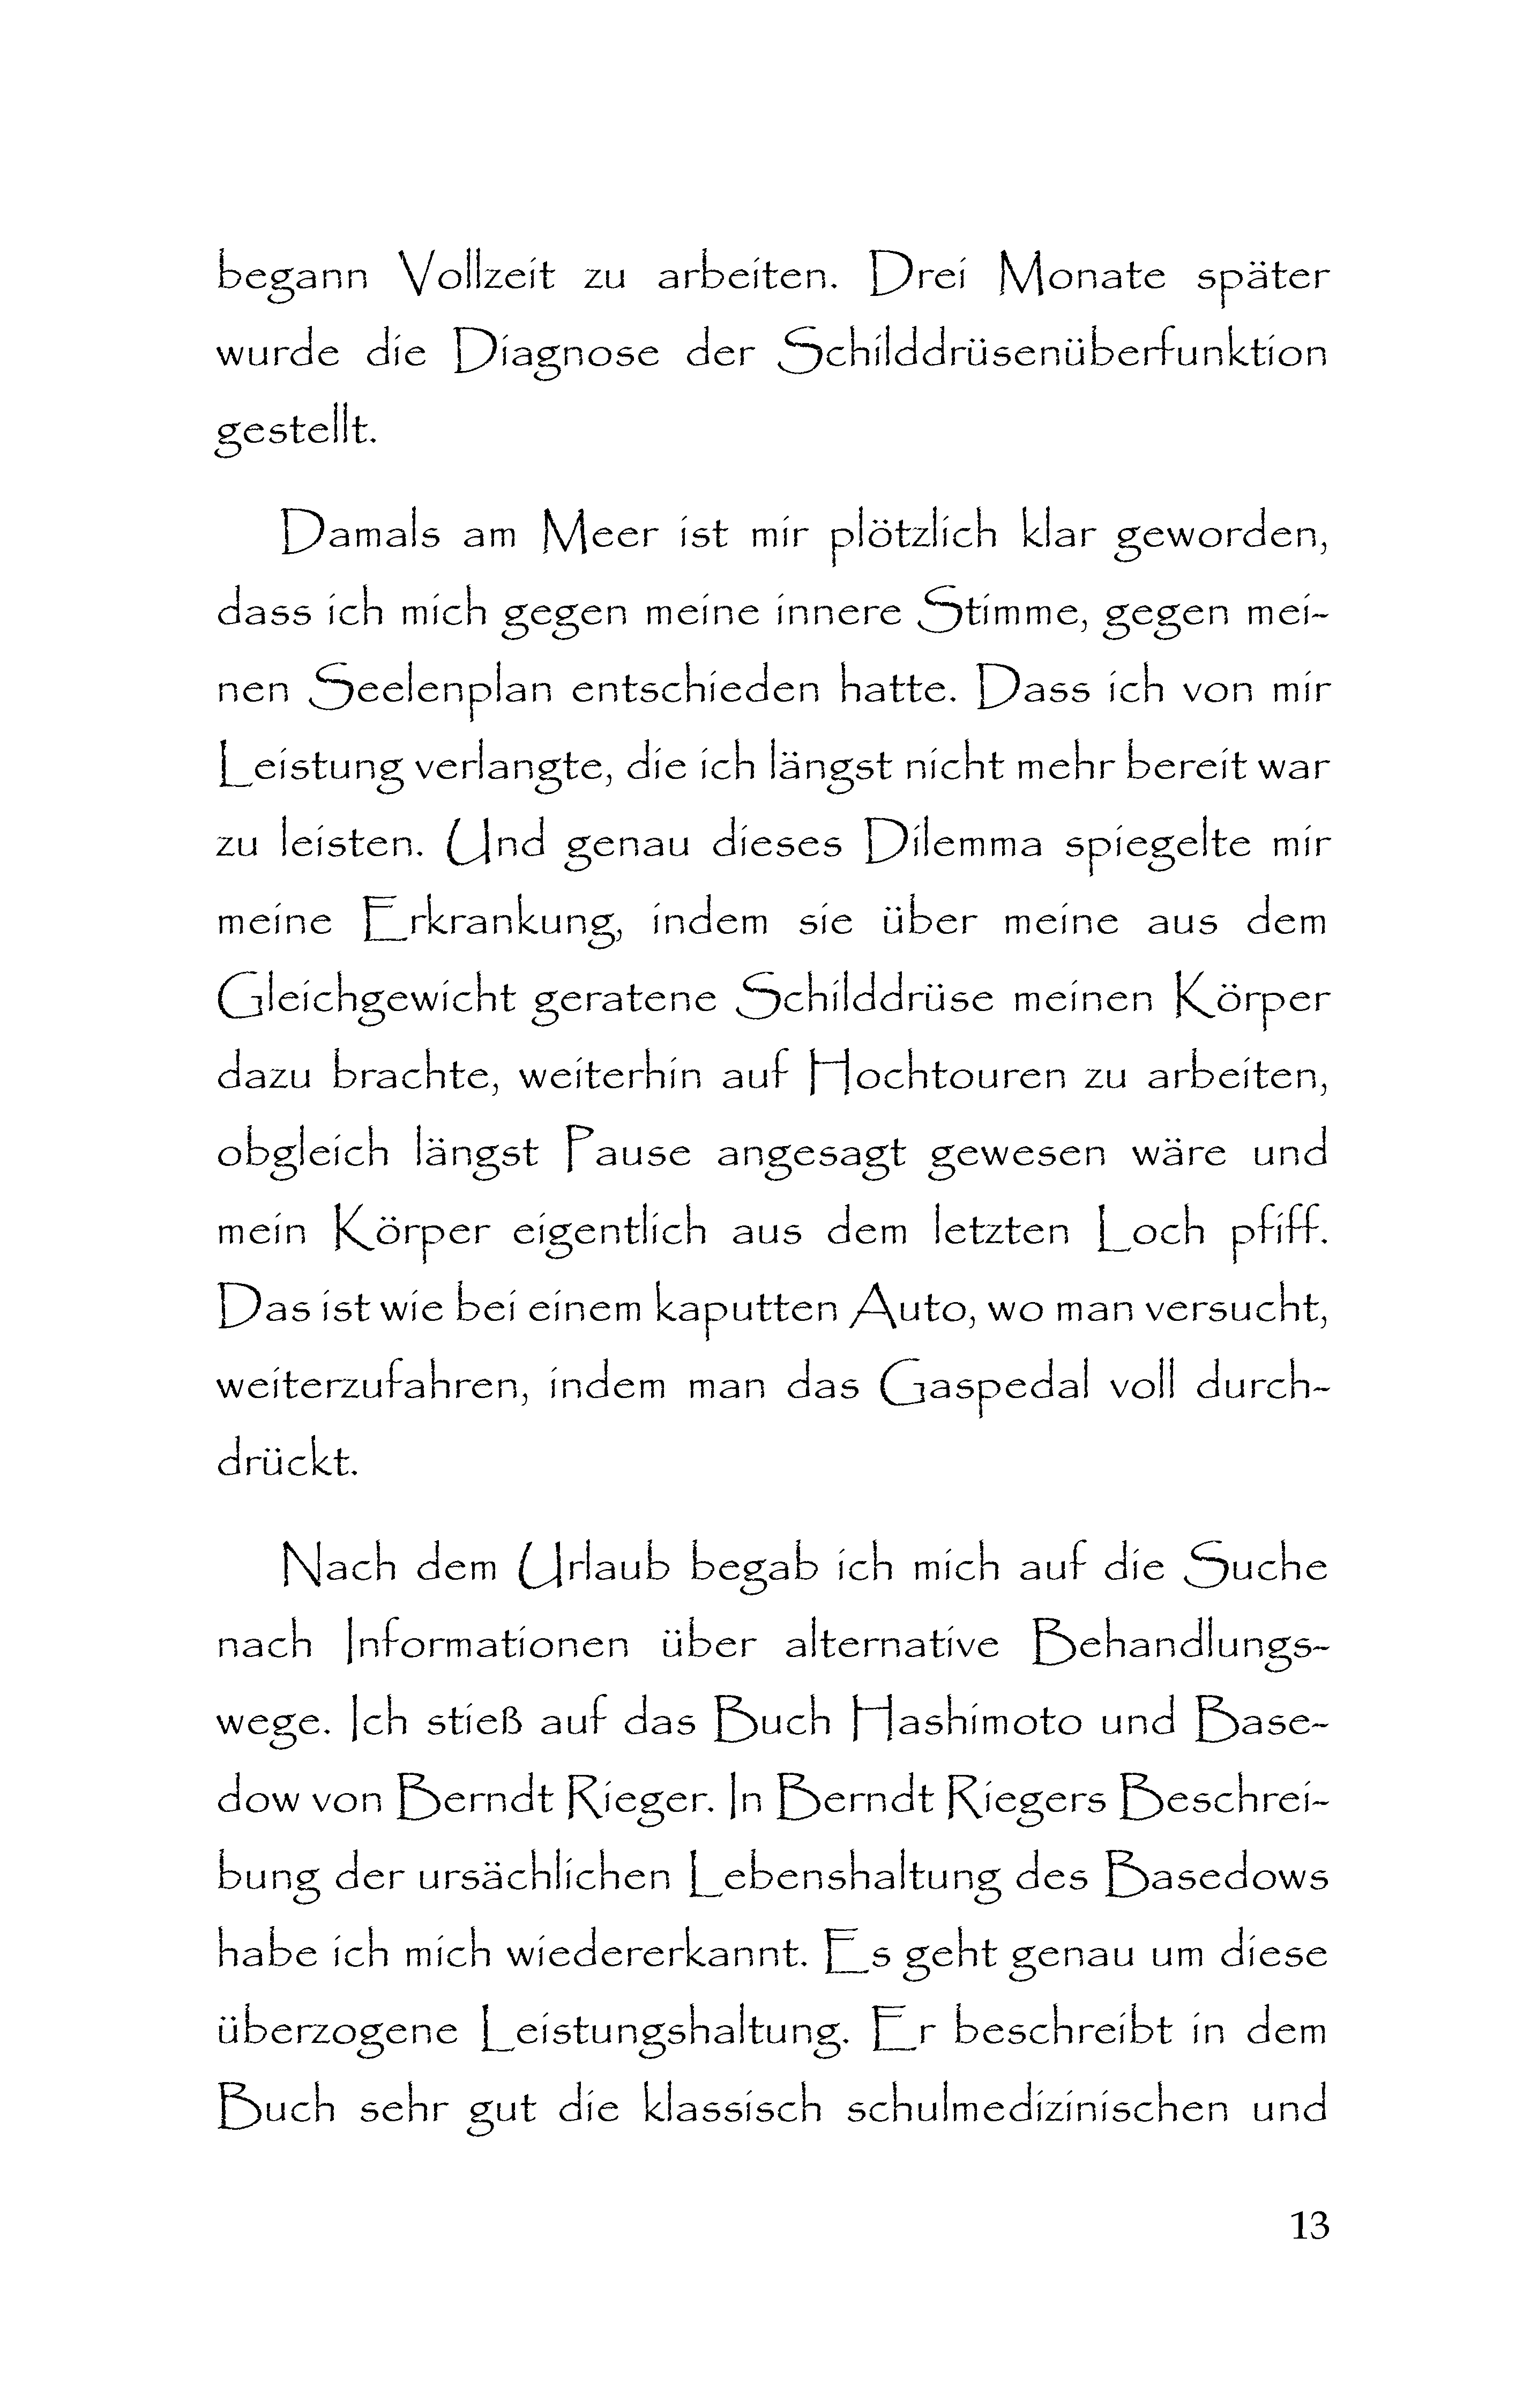 begann Vollzeit zu arbeiten. Drei Monate später
wurde die Diagnose der Schilddrüsenüberfunktion
gestellt.
Damals am Meer ist mir plötzlich klar geworden,
dass ich mich gegen meine innere Stimme, gegen mei-
nen Seelenplan entschieden hatte. Dass ich von mir
Leistung verlangte, die ich längst nicht mehr bereit war
zu leisten. Und genau dieses Dilemma spiegelte mir
meine Erkrankung, indem sie über meine aus dem
Gleichgewicht geratene Schilddrüse meinen Körper
dazu brachte, weiterhin auf Hochtouren zu arbeiten,
obgleich längst Pause angesagt gewesen wäre und
mein Körper eigentlich aus dem letzten Loch pfiff.
Das ist wie bei einem kaputten Auto, wo man versucht,
weiterzufahren, indem man das Gaspedal voll durch-
drückt.
Nach dem Urlaub begab ich mich auf die Suche
nach Informationen über alternative Behandlungs-
wege. Ich stieß auf das Buch Hashimoto und Base-
dow von Berndt Rieger. In Berndt Riegers Beschrei-
bung der ursächlichen Lebenshaltung des Basedows
habe ich mich wiedererkannt. Es geht genau um diese
überzogene Leistungshaltung. Er beschreibt in dem
Buch sehr gut die klassisch schulmedizinischen und
13